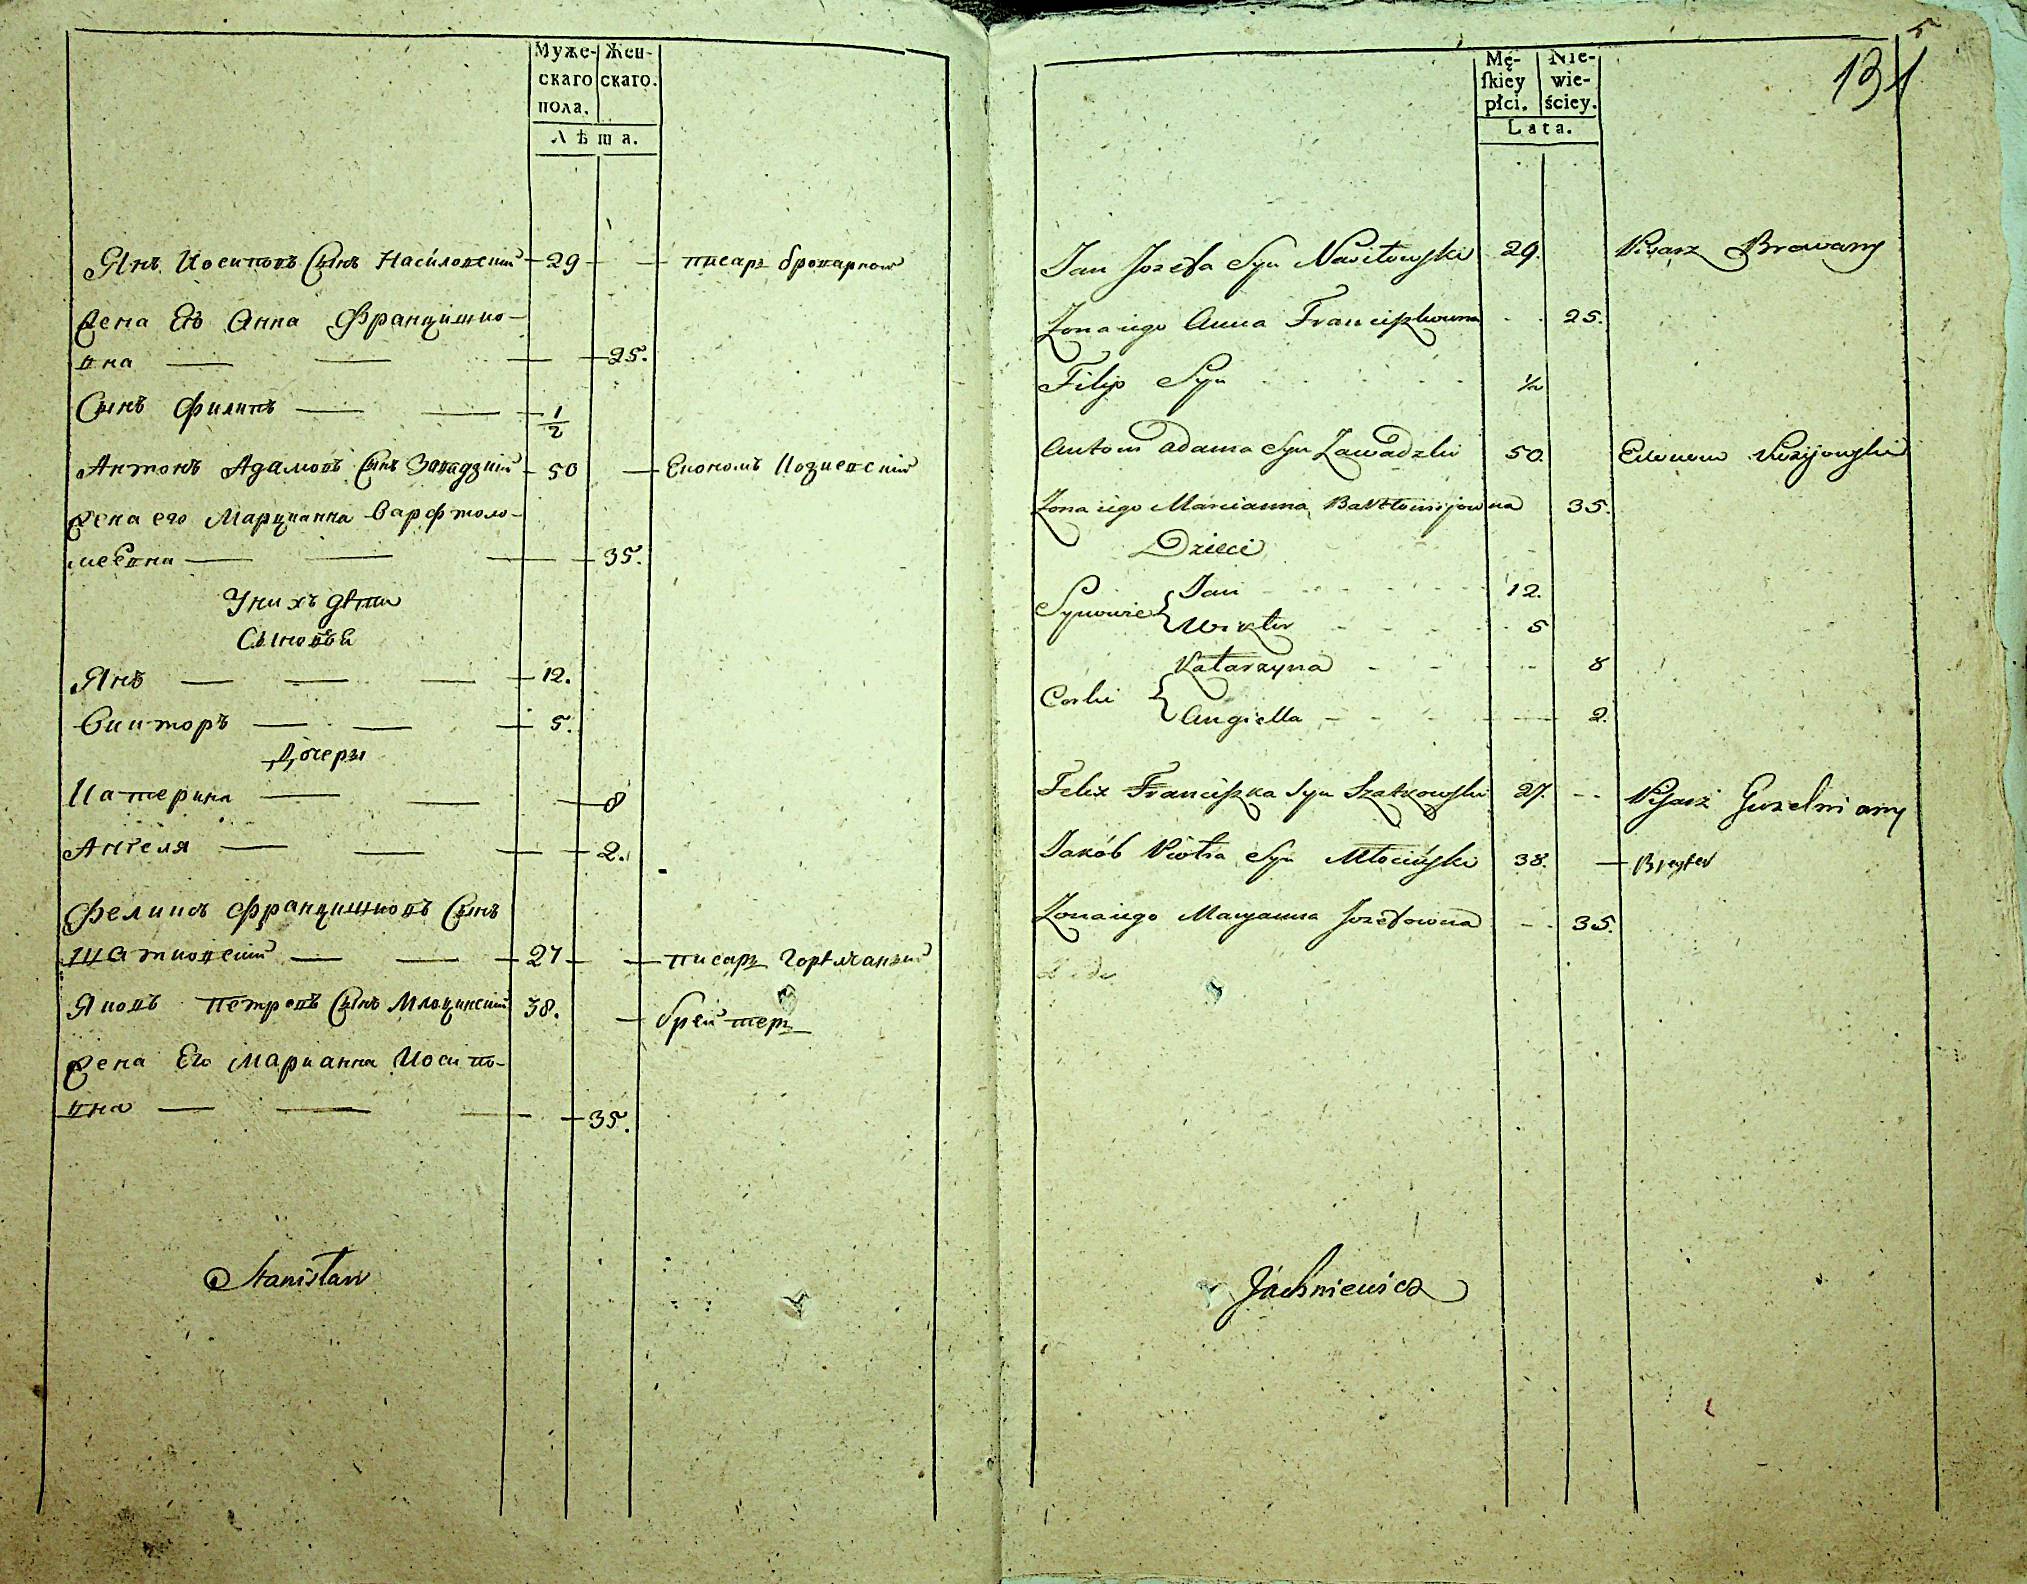 Муже- Жен-
скаго скаго.
пола.
Лѣта.
Янъ Іосиповъ Сынъ Насиловскій 29 писарь броварном
Жена Ев Анна Францишко-
вна 25.
Сынъ Филипъ 1/2
Антонъ Адамовъ Сынъ Завадзкій 50 Економъ
Жена его Марцианна Варфтоло-
меевна 35.
У нихъ дѣти
Сыновья
Янъ 12.
Викторъ 5.
Дочеры
Катерина 8
Ангеля 2.
Феликсъ Францишковъ Сынъ
Шатковскій 27 писарь Горѣлчаный
Яковъ Петровъ Сынъ Млоцинскій 38. брейтеръ
Жена Его Марианна Іосипо-
вна 35.
Stanisław
5
131
Mę- Nie-
ſkiey wie-
płci. ściey.
Lata.
Jan Jozefa Syn 29. Pisarz Browarny
Zona iego Anna Franciszkowna 25.
Filip Syn 1/2
Antoni Adama Syn Zawadzki 50. Ekonom
Zona iego Marcianna Bartłomijowna 35.
Dzieci
Synowie { Jan 12.
Wiktor 5
Katarzyna 8
Corki { Angiella 2.
Felix Franciszka Syn Szatkowski 27. Pisarz Gorzelniany
Jakób Piotra Syn Młociński 38. Breyter
Zona iego Maryanna Jozefowna 35.
Jachniewicz